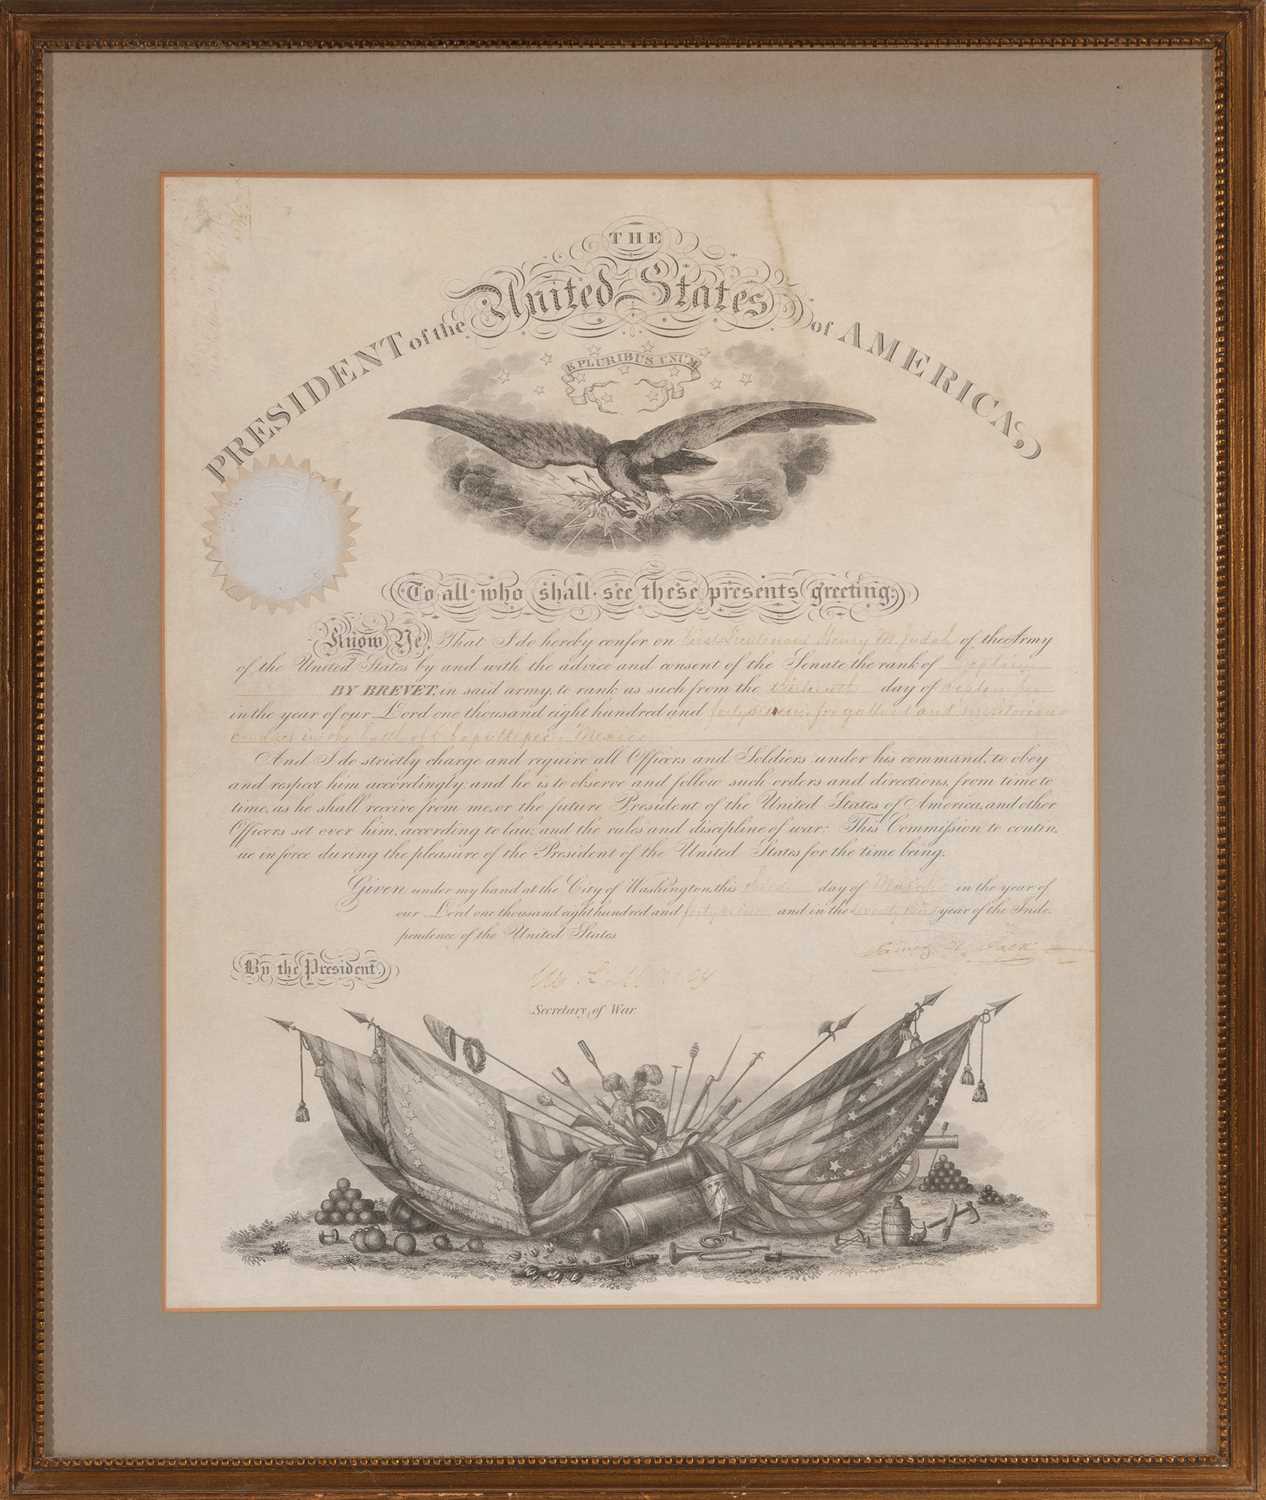 THE
PRESIDENT of the United States of AMERICA,
E PLURIBUS UNUM
To all who shall see these presents greeting:
Know Ye, That I do hereby confer on First Lieutenant Henry M. Judah of the Army
of the United States by and with the advice and consent of the Senate the rank of Captain
BY BREVET, in said army, to rank as such from the thirteenth day of September
in the year of our Lord one thousand eight hundred and forty seven, for gallant and meritorious
conduct in the battle of Chapultepec, Mexico.
And I do strictly charge and require all Officers and Soldiers under his command, to obey
and respect him accordingly, and he is to observe and follow such orders and directions, from time to
time, as he shall receive from me, or the future President of the United States of America, and other
Officers set over him, according to law, and the rules and discipline of war: This Commission to contin,
ue in force during the pleasure of the President of the United States for the time being.
Given under my hand at the City of Washington, this day of March in the year of
our Lord one thousand eight hundred and forty and in the seventy third year of the Inde,
pendence of the United States
James K. Polk
By the President,
W L Marcy
Secretary of War